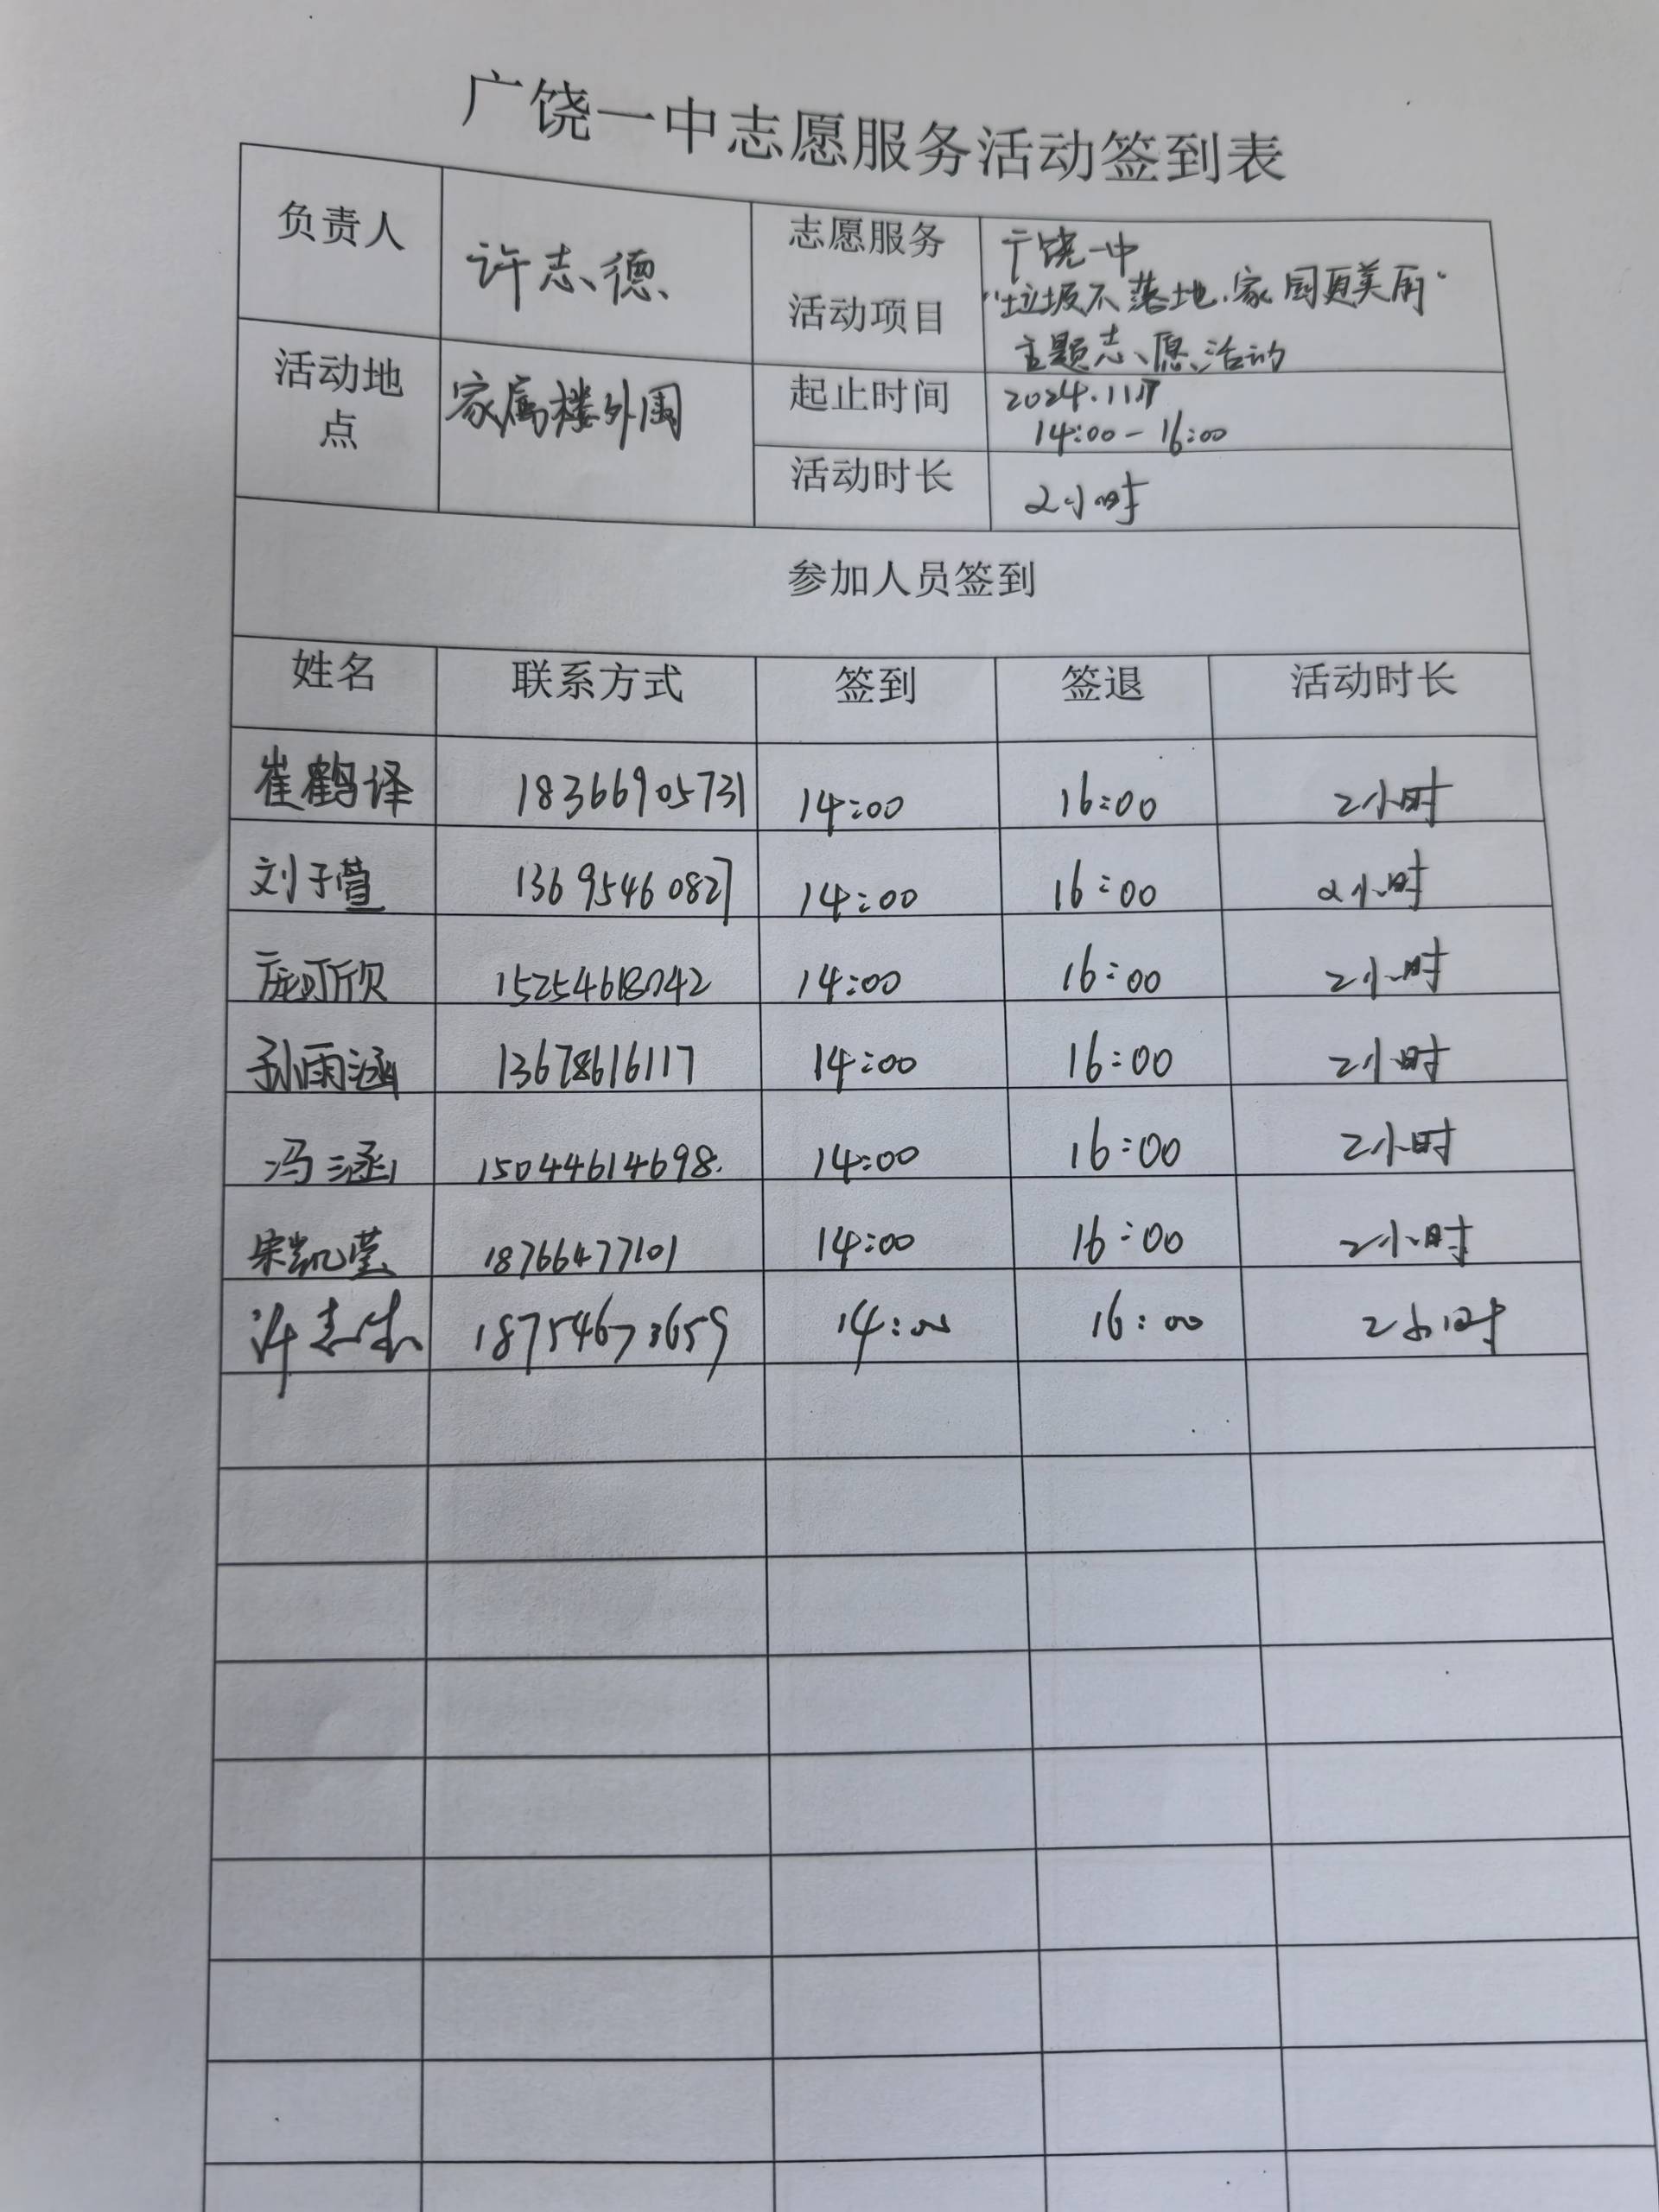 广饶一中志愿服务活动签到表
负责人 许志德 志愿服务活动项目 广饶一中
"垃圾不落地.家园更美丽"
主题志愿活动
活动地点 家属楼外围 起止时间 2024.11.17
14:00-16:00
活动时长 2小时
参加人员签到
姓名 联系方式 签到 签退 活动时长
崔鹤译 18366905731 14:00 16:00 2小时
刘子萱 13695460827 14:00 16:00 2小时
庞可欣 14:00 16:00 2小时
孙雨涵 13678616117 14:00 16:00 2小时
冯涵 15044614698 14:00 16:00 2小时
宋凯莹 18766477101 14:00 16:00 2小时
许志德 18754673659 14:00 16:00 2小时